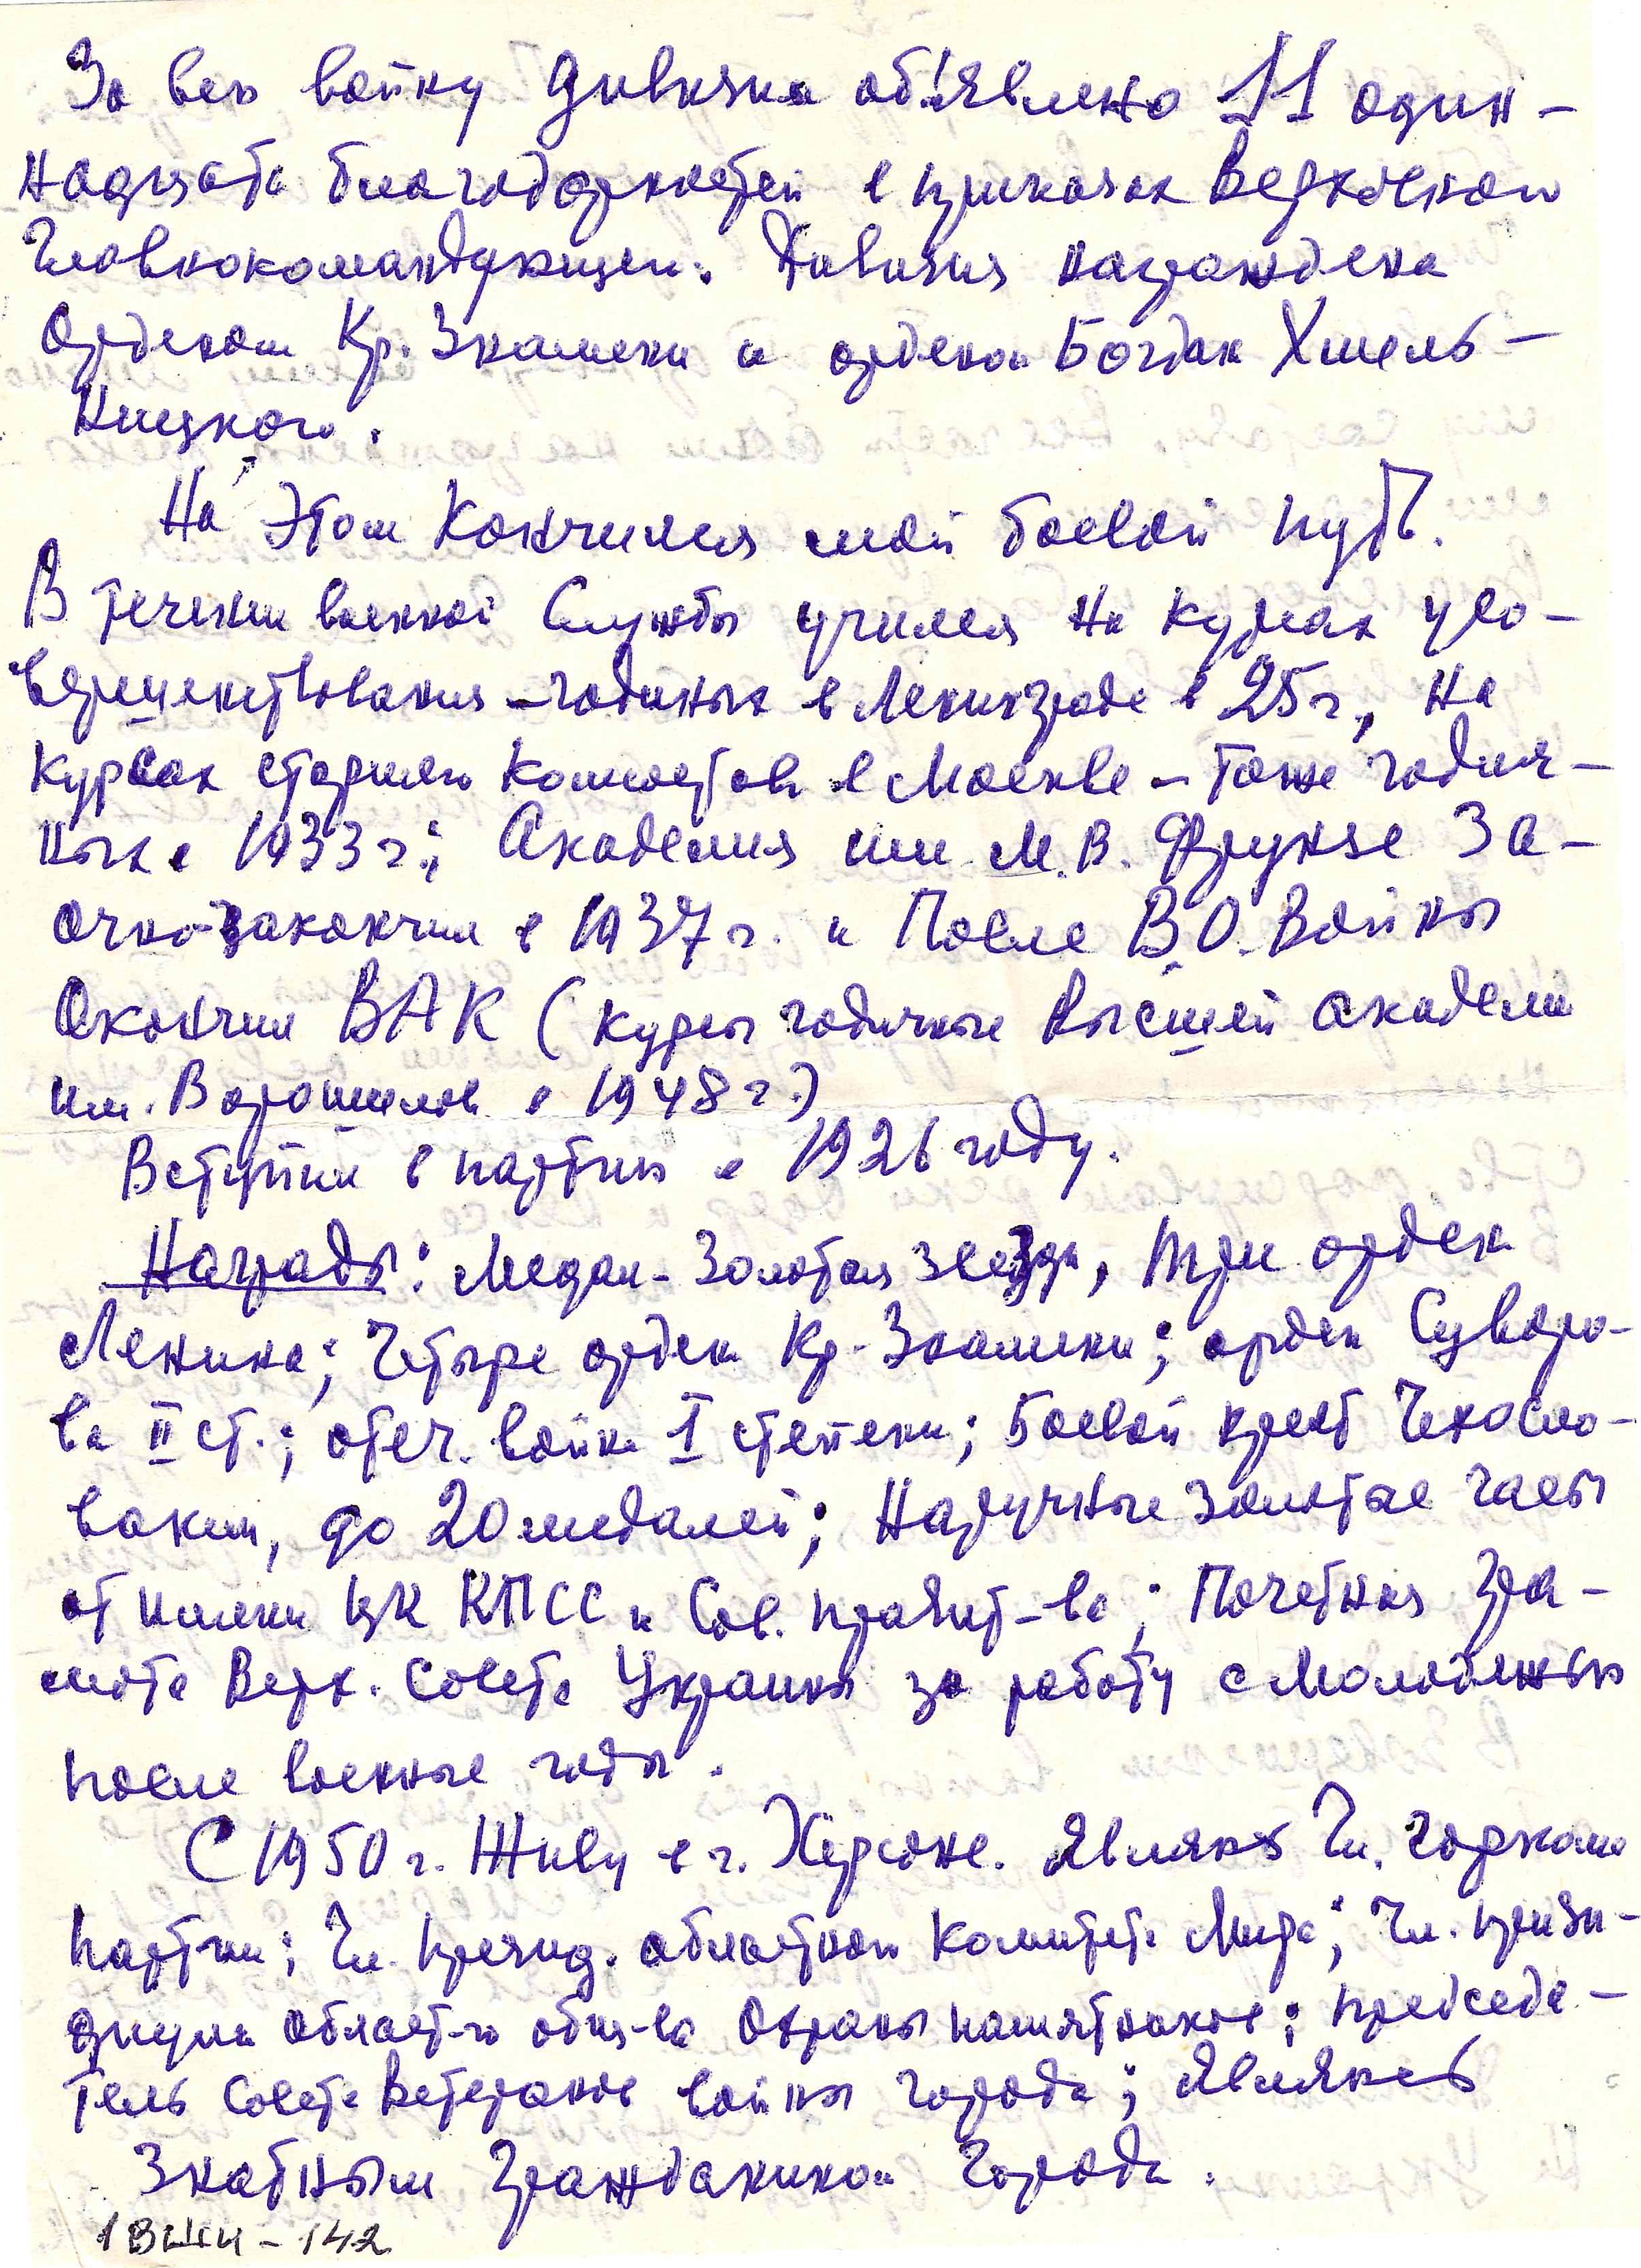 За всю войну дивизии объявлено 11 один-
надцать благодарностей в приказах Верховного
Главнокомандующего. Дивизия награждена
Орденом Кр. Знамени и орденом Богдан Хмель-
ницкого.
На этом кончился мой боевой путь.
В течении военной службы учился на курсах усо-
вершенствования - годичных в Ленинграде в 25 г., на
курсах старшего комсостава в Москве - тоже годич-
ных в 1933 г.; Академия им. М. В. Фрунзе за-
очно закончил в 1937 г. и После В.О. Войны
Окончил ВАК (курсы годичные Высшей академии
им. Ворошилова в 1948 г.)
Вступил в партию в 1926 году.
Награды: Медаль - Золотая звезда, три ордена
Ленина; Четыре ордена Кр. Знамени; орден Суворо-
ва II ст.; отеч. война I степени; Боевой крест Чехосло-
вакии, до 20 медалей; Наручные золотые часы
от имени ЦК КПСС и Сов. правит-ва; Почетная Гра-
мота Верх. Совета Украины за работу с молодежью
после военные годы.
С 1950 г. Живу в г. Херсоне. Являюсь Чл. горкома
партии; Чл. презид. областного Комитета Мира; Чл. прези-
диума област-го общ-ва Охраны памятников; председа-
тель Совета Ветеранов войны города; являюсь
Знатным Гражданином Города.
1ВШИ-142